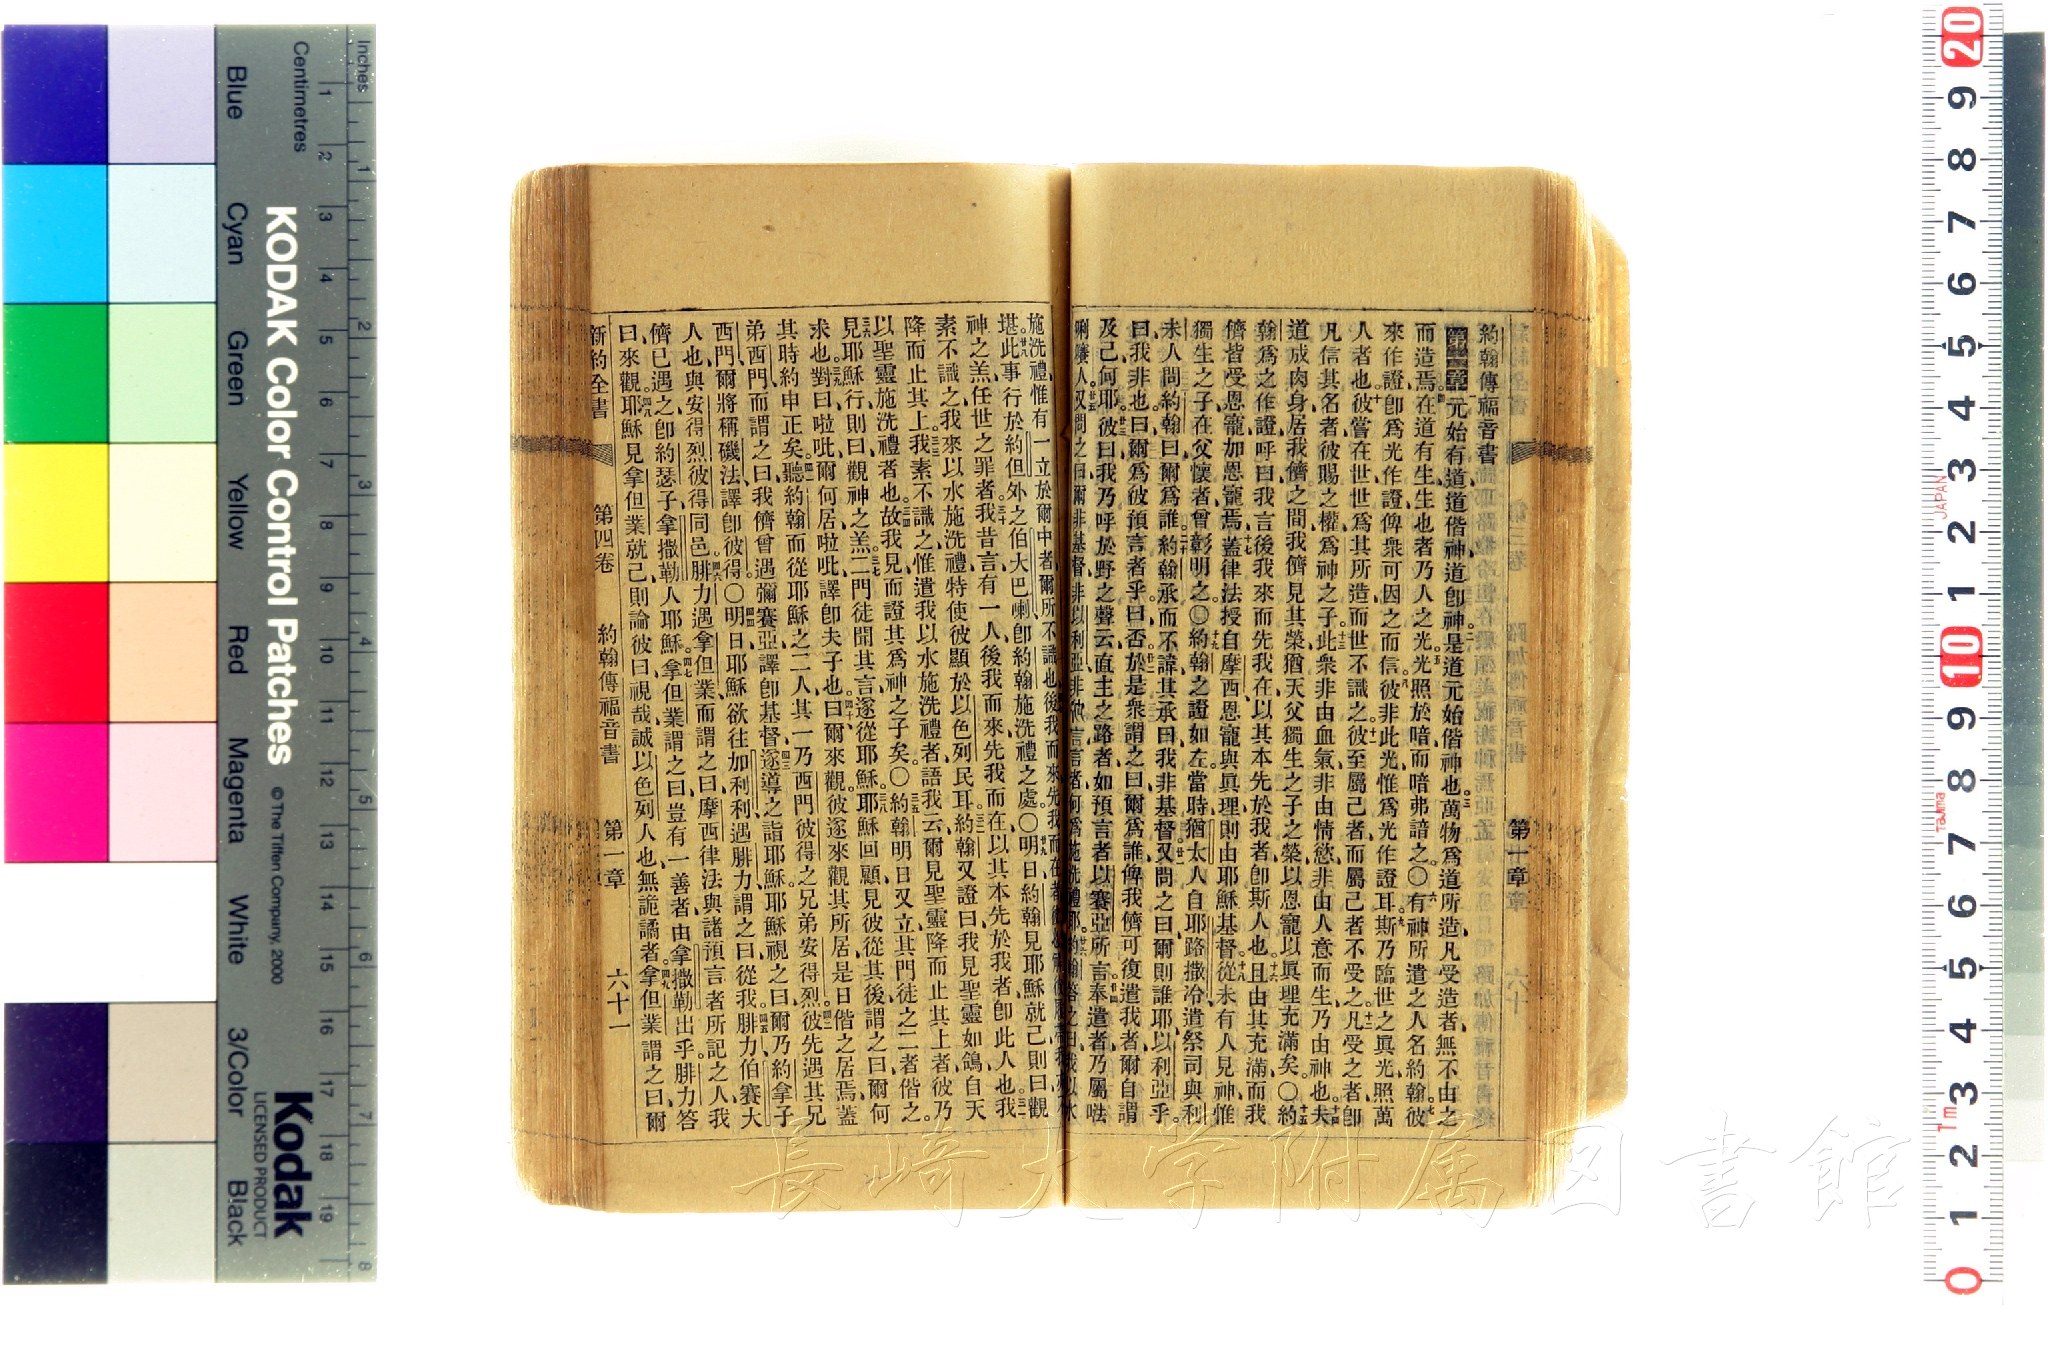 約翰傳福音書
第一章元始有道道偕神道卽神是道元始偕神也萬物爲道所造凡受造者無不由之
而造焉在道有生生也者乃人之光光照於暗而暗弗諳之〇有神所遣之人名約翰彼
來作證卽爲光作證俾衆可因之而信彼非此光惟爲光作證耳斯乃臨世之眞光照萬
人者也彼嘗在世世爲其所造而世不識之彼至屬己者而屬己者不受之凡受之者卽
凡信其名者彼賜之權爲神之子此衆非由血氣非由情慾非由人意而生乃由神也夫
道成肉身居我儕之間我儕見其榮猶天父獨生之子之榮以恩寵以眞理充滿矣〇約
翰爲之作證呼曰我言後我來而先我在以其本先於我者卽斯人也且由其充滿而我
儕皆受恩寵加恩寵焉蓋律法授自摩西恩寵與眞理則由耶穌基督從未有人見神惟
獨生之子在父懷者曾彰明之〇約翰之證如左當時猶太人自耶路撒冷遣祭司與利
未人問約翰曰爾爲誰約翰承而不諱其承曰我非基督又問之曰爾則誰耶以利亞乎
曰我非也曰爾爲彼預言者乎曰否於是衆謂之曰爾爲誰俾我儕可復遣我者爾自謂
及己何耶彼曰我乃呼於野之聲云直主之路者如預言者以賽亞所言奉遣者乃屬𠵽
唎㘔人又問之曰爾非基督非以利亞非彼預言者何爲施洗禮耶約翰答之曰我以水
施洗禮惟有一立於爾中者爾所不識也後我而來先我而在者
堪此事行於約但外之伯大巴喇卽約翰施洗禮之處〇明日約翰見耶穌就己則曰觀
神之羔任世之罪者我昔言有一人後我而來先我而在以其本先於我者卽此人也我
素不識之我來以水施洗禮特使彼顯於以色列民耳約翰又證曰我見聖靈如鴿自天
降而止其上我素不識之惟遣我以水施洗禮者語我云爾見聖靈降而止其上者彼乃
以聖靈施洗禮者也故我見而證其爲神之子矣〇約翰明日又立其門徒之二者偕之
見耶穌行則曰觀神之羔二門徒聞其言遂從耶穌耶穌回顧見彼從其後謂之曰爾何
求也對曰啦吡爾何居啦吡譯卽夫子也曰爾來觀彼遂來觀其所居是日偕之居焉蓋
其時約申正矣聽約翰而從耶穌之二人其一乃西門彼得之兄弟安得烈彼先遇其兄
弟西門而謂之曰我儕曾遇彌賽亞譯卽基督遂導之詣耶穌耶穌視之曰爾乃約拿子
西門爾將稱磯法譯卽彼得〇明日耶穌欲往加利利遇腓力謂之曰從我腓力伯賽大
人也與安得烈彼得同邑腓力遇拿但業而謂之曰摩西律法與諸預言者所記之人我
儕已遇之卽約瑟子拿撒勒人耶穌拿但業謂之曰豈有一善者由拿撒勒出乎腓力答
曰來觀耶穌見拿但業就己則論彼曰視哉誠以色列人也無詭譎者拿但業謂之曰爾
新約全書 第四卷 約翰傳福音書 第一章 六十一
長崎大学附属図書館
KODAK Color Control Patches
© The Tiffen Company, 2000
Kodak
LICENSED PRODUCT
Inches 1 2 3 4 5 6 7 8
Centimetres 1 2 3 4 5 6 7 8 9 10 11 12 13 14 15 16 17 18 19
Blue Cyan Green Yellow Red Magenta White 3/Color Black
20 9 8 7 6 5 4 3 2 1 10 9 8 7 6 5 4 3 2 1 0
JAPAN
Tajima
Tm